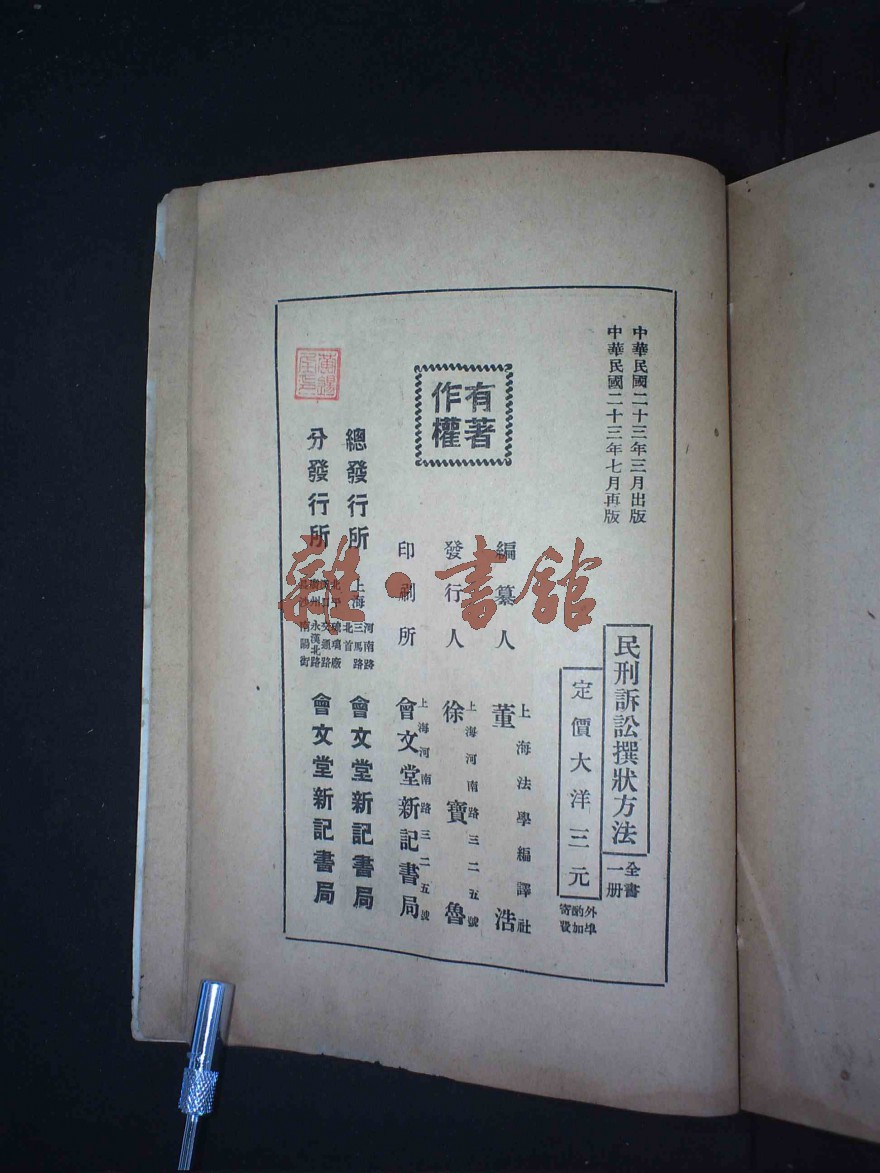 中華民國二十三年三月出版
中華民國二十三年七月再版
民刑訴訟撰狀方法
全書一册
定價大洋三元
外埠酌加寄費
有著作權
編纂人
上海法學編譯社
董浩
發行人
上海河南路三二五號
徐寶魯
印刷所
上海河南路三二五號
會文堂新記書局
總發行所
上海
河南路
三馬路
北首
會文堂新記書局
分發行所
北平 琉璃廠
漢口 交通路
廣州 永漢北路
長沙 南陽街
會文堂新記書局
雜·書館